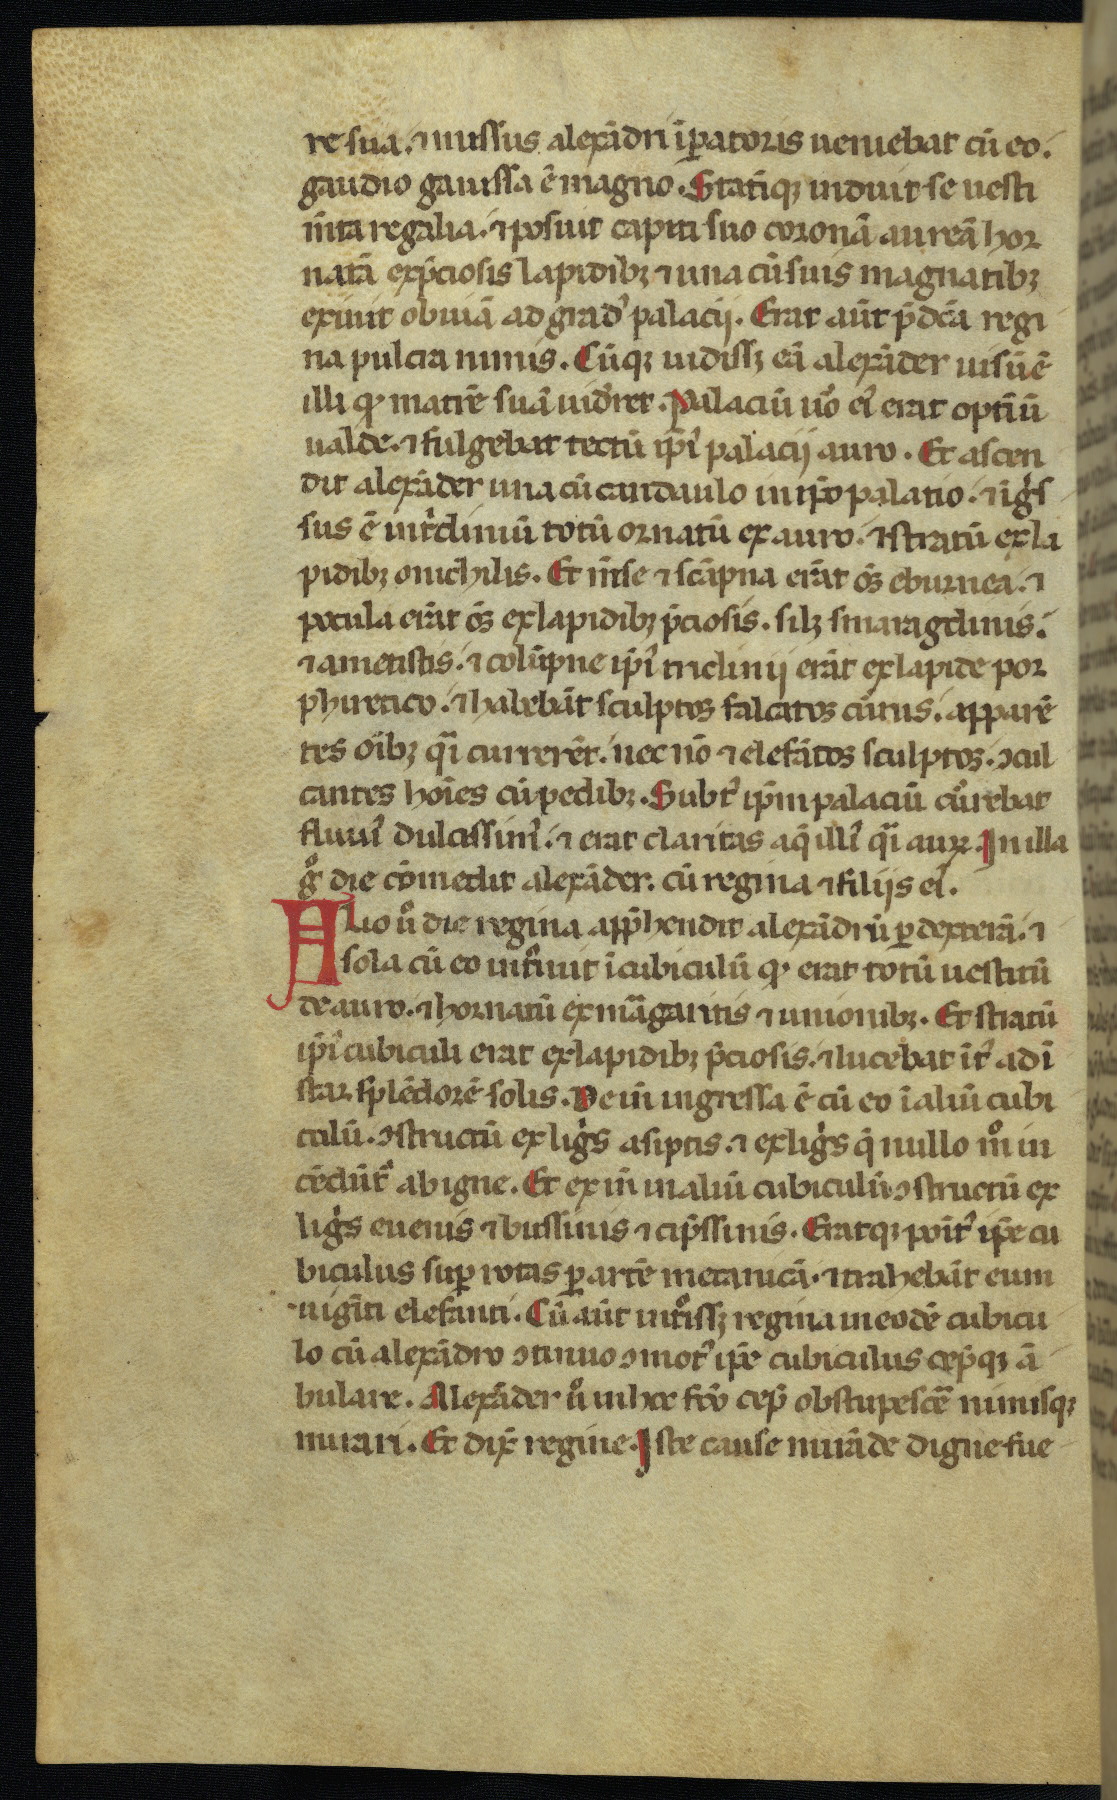 re sua. ⁊ missus alexãdri ĩꝑatoris ueniebat cũ eo.
gaudio gauissa ẽ magno. Statĩqꝫ induit se uesti
m̃ta regalia. ⁊ posuit capiti suo coronã aureã hor
natã exp̃ciosis lapidibꝫ ⁊ una cũ suis magnatibꝫ
exiuit obuiã ad gradꝰ palacij. Erat aũt p̃dc̃a regi
na pulcra nimis. Cũqꝫ uidissꝫ eã alexãder uisũ ẽ
illi ꝙ matrẽ suã uiđret. Palaciũ u̾o eiꝰ erat optĩũ
ualde. ⁊ fulgebat tectũ ip̃iꝰ palacij auro. Et ascen
dit alexãder una cũ candaulo in ip̃o palatio. ⁊ ĩg̾s
sus ẽ int̾cliniũ totũ ornatũ ex auro. ⁊ stratũ ex la
pidibꝫ onichilis. Et m̃se ⁊ scãpna erãt oẽs eburnea. ⁊
pocula erãt oẽs ex lapidibꝫ p̃ciosis. silꝫ smaragdinis.
⁊ ametistis. ⁊ colũpne ip̃iꝰ triclinij erãt ex lapide por
phiretico. ⁊ habebãt sculptos falcatos cũrus. apparẽ
tes oĩbꝫ q̃i currerẽt. nec nõ ⁊ elefãtos sculptos. ↄcul
cantes hoĩes cũ pedibꝫ. Subtꝰ ip̃m palaciũ cu̾rebat
fluuiꝰ dulcissimꝰ. ⁊ erat claritas aq̃ illiꝰ q̃i auꝝ. In illa
g̊ die cõmedit alexãder. cũ regina ⁊ filijs eiꝰ.
Alio u̾ die regina app̃hendit alexãdrũ ꝑ dexterã. ⁊
sola cũ eo int̾uit ĩ cubiculũ ꝙ erat totũ uestitũ
de auro. ⁊ hornatũ ex mãgaritis ⁊ unionibꝫ. Et stratũ
ip̃iꝰ cubiculi erat ex lapidibꝫ p̃ciosis. ⁊ lucebat ĩtꝰ ad ĩ
star splẽdorẽ solis. Dein̄ ingressa ẽ cũ eo ĩ aliũ cubi
culũ. ↄstructũ ex lig̾s asiptis. ⁊ ex lig̾s q̃ nullo m̊o in
cẽdũtꝰ ab igne. Et ex iñ in aliũ cubiculũ ↄstructũ ex
lig̾s euenis ⁊ bussinis ⁊ cip̃ssinis. Eratqꝫ poĩtꝰ ip̃e cu
biculus suꝑ rotas ꝑ artẽ mecanicã. ⁊ trahebãt eum
uigĩti elefanti. Cũ aũt int̾issꝫ regina in eodẽ cubicu
lo cũ alexãdro ↄtinuo ↄmotꝰ ip̃e cubiculus cep̃qꝫ ã
bulare. Alexãder u̾ in hoc fc̃o cep̃ obstupescẽ nimisqꝫ
mirari. Et dix̃ regine. Iste cause mirãde digne fue